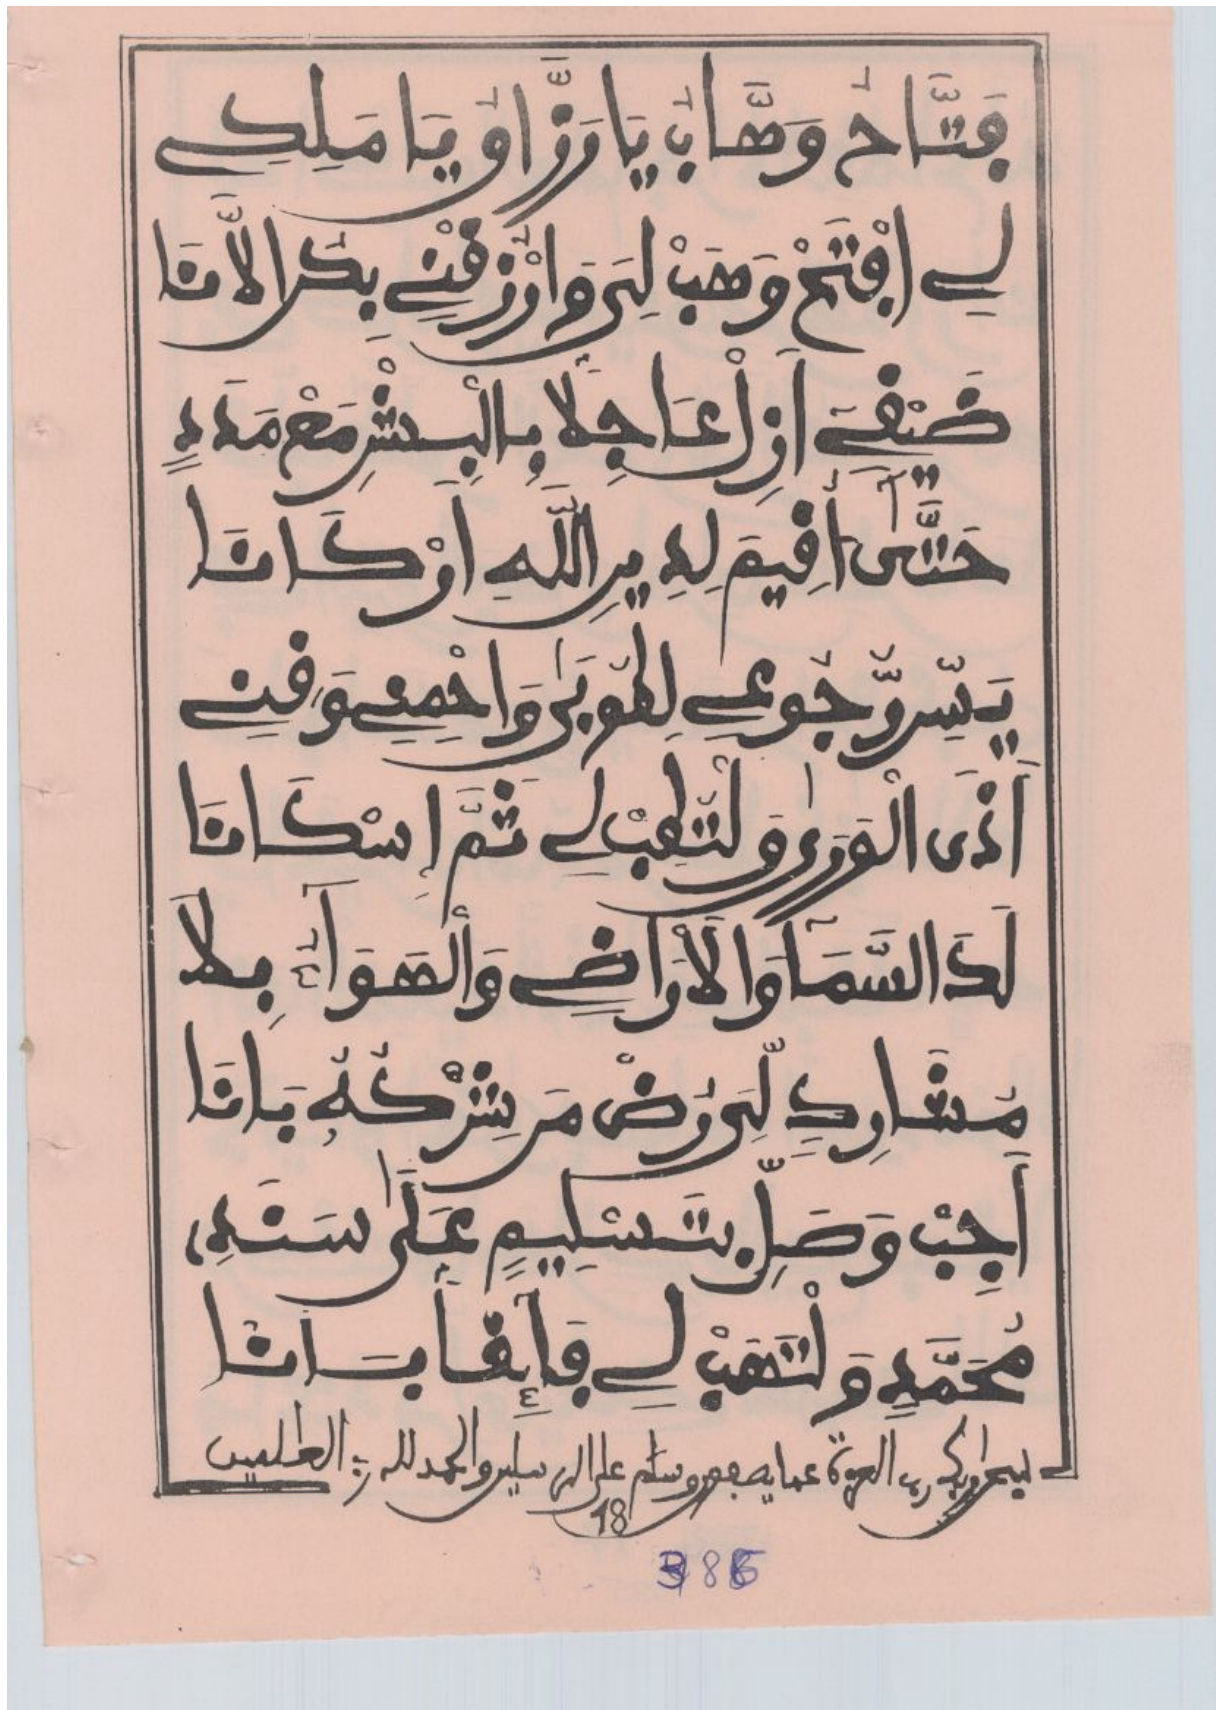 فَتَّاحُ وَهَّابُ يَا رَزَّاقُ يَا مَلِكِے
لِے اِفْتَحْ وَهَبْ لِىَ وَارْزُقْنِے بِكْرَ الَّامَنَا
ضَيْفِےَ أَزِلْ عَاجِلًا بِالْبِشْرِ مَعْ مَدَدٍ
حَتَّىٰ أُفِيمَ لِدِينِ اللَّهِ أَرْكَانَا
يَسِّرْ رُّجُوعِے لِطُوبَىٰ وَاحْمِنِے وَفِنِے
أَذَى الْوَرَىٰ وَلْتَطِبْ لِے ثَمَّ إِسْكَانَا
لَدَ السَّمَا وَالْأَرَاضِے وَالْهَوَآءُ بِلَا
لِىَ رُضْ مَن شِرْكُهُ بَانَا
أَجِبْ وَصَلِّ بِتَسْلِيمٍ عَلَىٰ سَنَدِ،
مُحَمَّدٍ وَلْتَهَبْ لِے فَآئِفًا بَانَا
سبحن ربك رب العزة عما يصفون وسلم على المرسلين والحمد لله رب العلمين
18